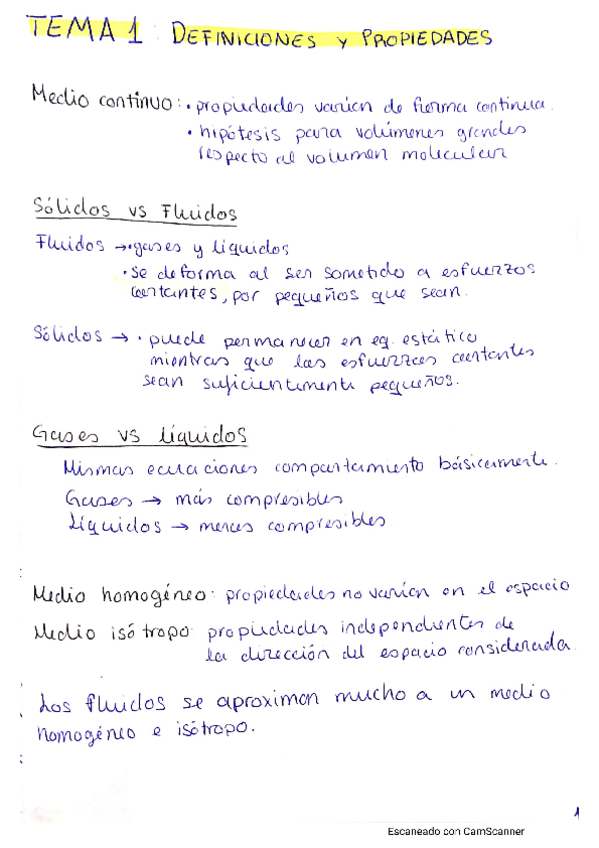 TEMA 1 : DEFINICIONES Y PROPIEDADES
Medio continuo: • propiedades varían de forma continua.
• hipótesis para volúmenes grandes
respecto al volumen molecular
Sólidos vs Fluidos
Fluidos → • gases y líquidos
• Se deforma al ser sometido a esfuerzos
cortantes, por pequeños que sean.
Sólidos → • puede permanecer en eq. estático
mientras que los esfuerzos cortantes
sean suficientemente pequeños.
Gases vs líquidos
Mismas ecuaciones comportamiento básicamente.
Gases → más compresibles
Líquidos → menos compresibles
Medio homogéneo: propiedades no varían en el espacio
Medio isótropo: propiedades independientes de
la dirección del espacio considerada.
Los fluidos se aproximan mucho a un medio
homogéneo e isótropo.
1
Escaneado con CamScanner